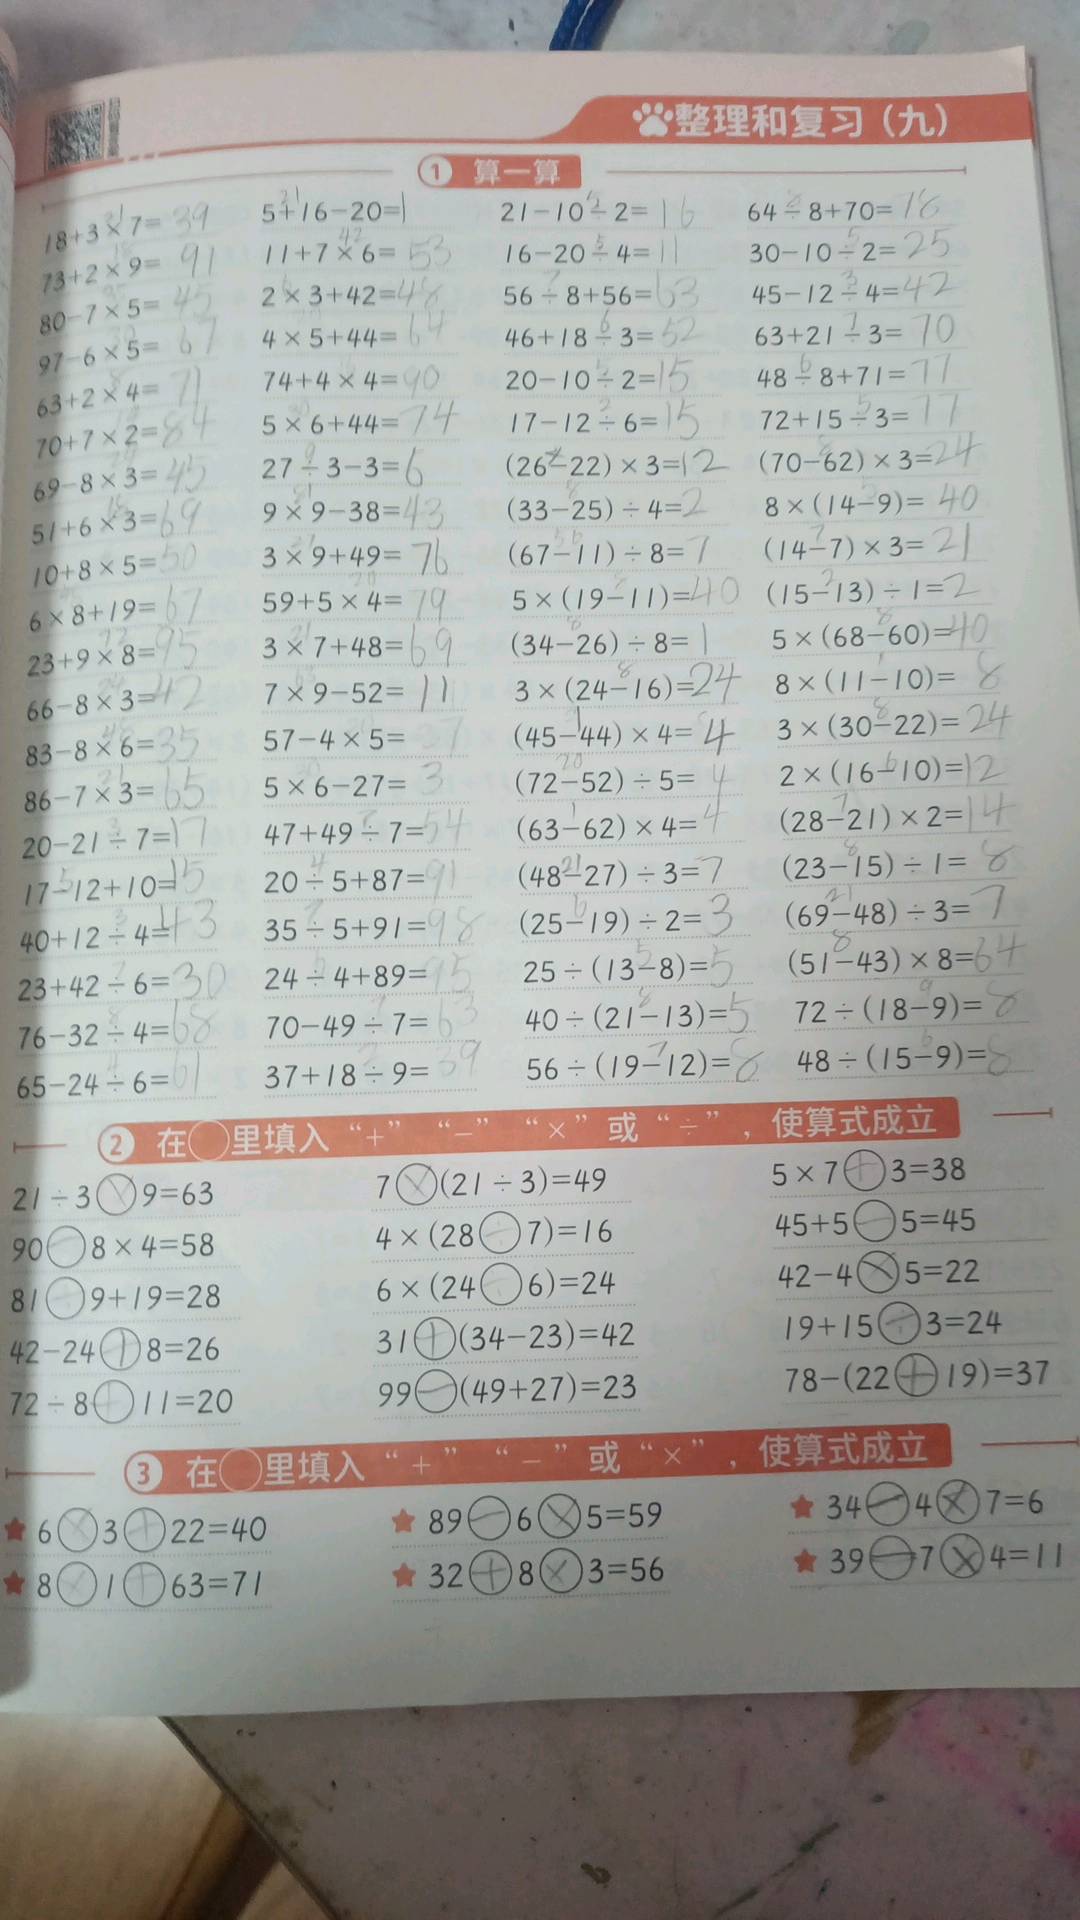 整理和复习（九）
① 算一算
18+3×7=39 5+16-20=1 21-10÷2=16 64÷8+70=78
73+2×9=91 11+7×6=53 16-20÷4=11 30-10÷2=25
80-7×5=45 2×3+42=48 56÷8+56=63 45-12÷4=42
97-6×5=67 4×5+44=64 46+18÷3=52 63+21÷3=70
63+2×4=71 74+4×4=90 20-10÷2=15 48÷8+71=77
70+7×2=84 5×6+44=74 17-12÷6=15 72+15÷3=77
69-8×3=45 27÷3-3=6 (26-22)×3=12 (70-62)×3=24
51+6×3=69 9×9-38=43 (33-25)÷4=2 8×(14-9)=40
10+8×5=50 3×9+49=76 (67-11)÷8=7 (14-7)×3=21
6×8+19=67 59+5×4=79 5×(19-11)=40 (15-13)÷1=2
23+9×8=95 3×7+48=69 (34-26)÷8=1 5×(68-60)=40
66-8×3=42 7×9-52=11 3×(24-16)=24 8×(11-10)=8
83-8×6=35 57-4×5=37 (45-44)×4=4 3×(30-22)=24
86-7×3=65 5×6-27=3 (72-52)÷5=4 2×(16-10)=12
20-21÷7=17 47+49÷7=54 (63-62)×4=4 (28-21)×2=14
17-12+10=15 20÷5+87=91 (48-27)÷3=7 (23-15)÷1=8
40+12÷4=43 35÷5+91=98 (25-19)÷2=3 (69-48)÷3=7
23+42÷6=30 24÷4+89=95 25÷(13-8)=5 (51-43)×8=64
76-32÷4=68 70-49÷7=63 40÷(21-13)=5 72÷(18-9)=8
65-24÷6=61 37+18÷9=39 56÷(19-12)=8 48÷(15-9)=8
② 在○里填入“+”“-”“×”或“÷”，使算式成立
21÷3×9=63 7×(21÷3)=49 5×7+3=38
90-8×4=58 4×(28÷7)=16 45+5-5=45
81÷9+19=28 6×(24○6)=24 42-4×5=22
42-24+8=26 31+(34-23)=42 19+15÷3=24
72÷8+11=20 99-(49+27)=23 78-(22+19)=37
③ 在○里填入“+”“-”或“×”，使算式成立
★6×3+22=40 ★89-6×5=59 ★34-4×7=6
★8×1+63=71 ★32+8×3=56 ★39-7×4=11